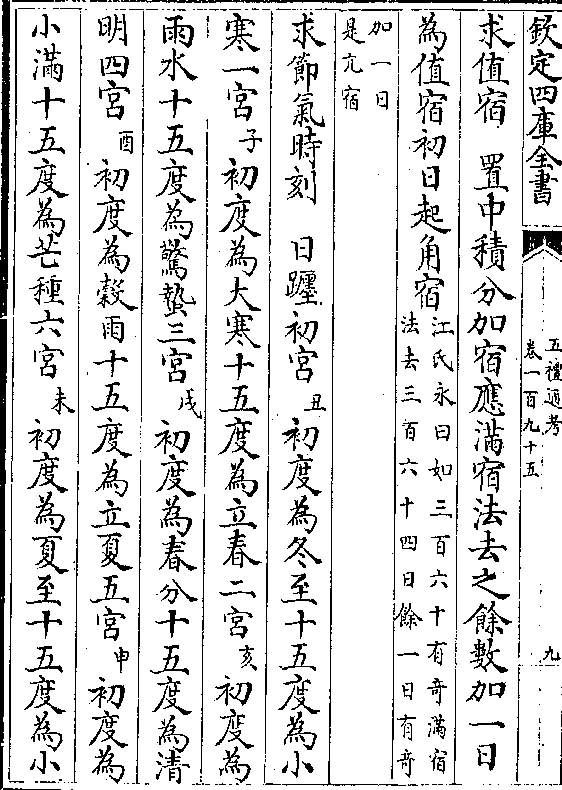 欽定四庫全書
五禮通考
卷一百九十五
九
求值宿　置中積分加宿應滿宿法去之餘數加一日
為值宿初日起角宿
江氏永曰如三百六十有奇滿宿
法去三百六十四日餘一日有奇
加一日
是亢宿
求節氣時刻　日躔初宮丑初度為冬至十五度為小
寒一宮子初度為大寒十五度為立春二宮亥初度為
雨水十五度為驚蟄三宮戌初度為春分十五度為清
明四宮酉初度為穀雨十五度為立夏五宮申初度為
小滿十五度為芒種六宮未初度為夏至十五度為小